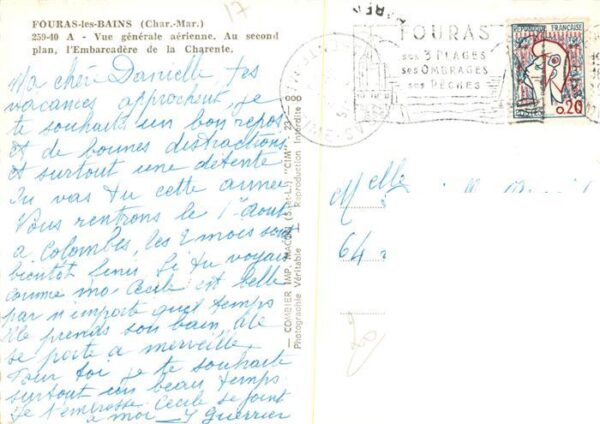 FOURAS-les-BAINS (Char.-Mar.)
17
259-40 A - Vue générale aérienne. Au second
plan, l'Embarcadère de la Charente.
Ma chère Danielle tes
vacances approchent, je
te souhaite un bon repos
et de bonnes distractions
et surtout une détente
Ou vas tu cette année
Nous rentrons le 1er Aout
a Colombes, les 2 mois sont
bientôt finis Si tu voyais
comme ma Cécile est belle
par n'importe quel temps
elle prends son bain, elle
se porte a merveille
Pour toi je te souhaite
surtout un beau temps
Je t'embrasse Cécile se joint
a moi Y Guerrier
COMBIER IMP. MACON (S.-et-L.) "CIM"
Photographie Véritable - Reproduction Interdite
FOURAS
ses 3 PLAGES
ses OMBRAGES
ses PÊCHES
REPUBLIQUE FRANÇAISE
0,20
Melle
64